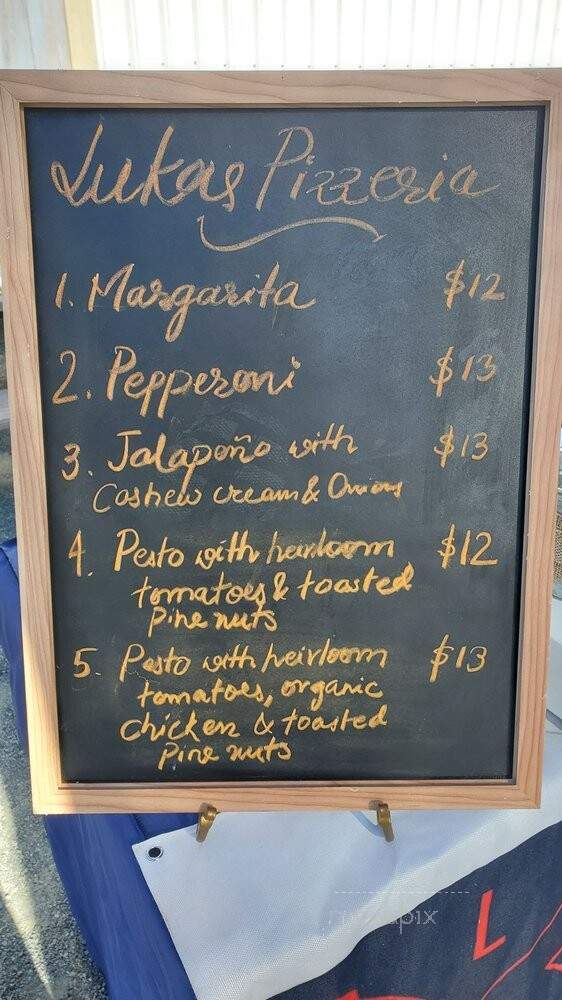 Lukas Pizzeria
1. Margarita $12
2. Pepperoni $13
3. Jalapeño with $13
Cashew cream & Onions
4. Pesto with heirloom $12
tomatoes & toasted
pine nuts
5. Pesto with heirloom $13
tomatoes, organic
chicken & toasted
pine nuts
L